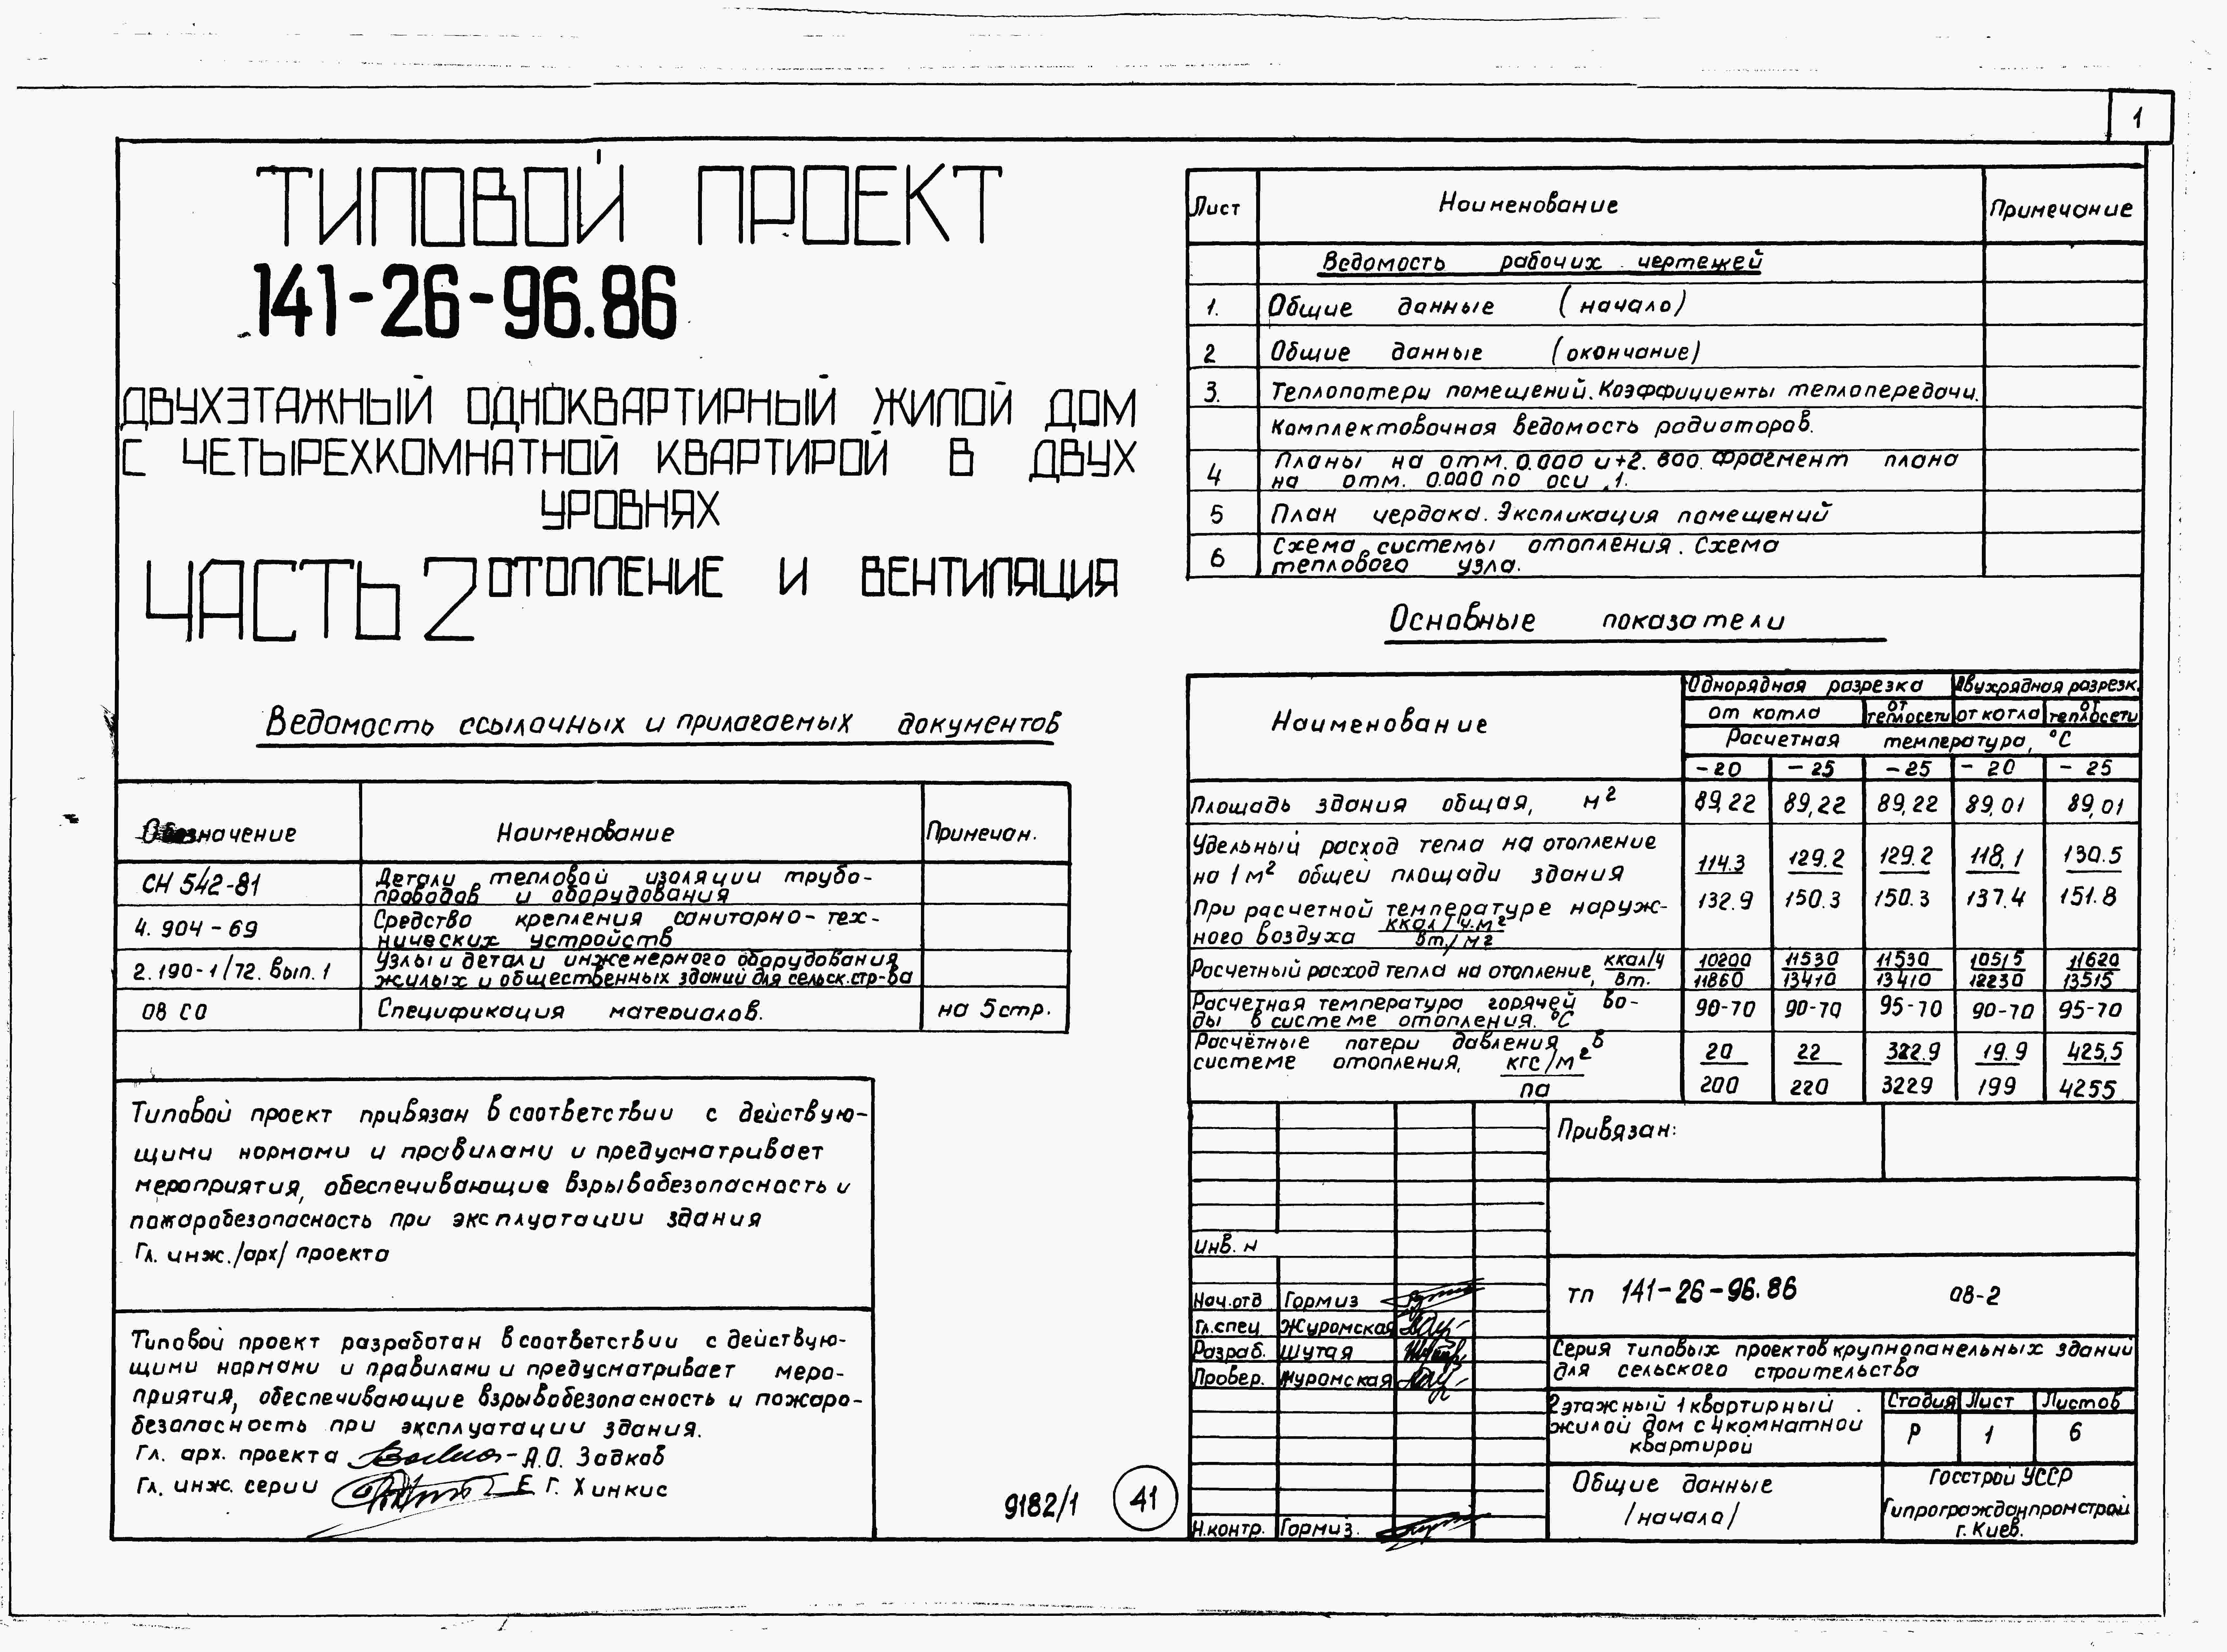 1
ТИПОВОЙ ПРОЕКТ
141-26-96.86
ДВУХЭТАЖНЫЙ ОДНОКВАРТИРНЫЙ ЖИЛОЙ ДОМ
С ЧЕТЫРЕХКОМНАТНОЙ КВАРТИРОЙ В ДВУХ
УРОВНЯХ
ЧАСТЬ 2 ОТОПЛЕНИЕ И ВЕНТИЛЯЦИЯ
Ведомость ссылочных и прилагаемых документов
Обозначение Наименование Примечан.
СН 542-81 Детали тепловой изоляции трубо-
проводов и оборудования
4.904-69 Средства крепления санитарно-тех-
нических устройств
2.190-1/72. Вып. 1 Узлы и детали инженерного оборудования
жилых и общественных зданий для сельск. стр-ва
ОВ СО Спецификация материалов. на 5 стр.
Типовой проект привязан в соответствии с действую-
щими нормами и правилами и предусматривает
мероприятия, обеспечивающие взрывобезопасность и
пожаробезопасность при эксплуатации здания
Гл. инж. /арх/ проекта
Типовой проект разработан в соответствии с действую-
щими нормами и правилами и предусматривает меро-
приятия, обеспечивающие взрывобезопасность и пожаро-
безопасность при эксплуатации здания.
Гл. арх. проекта А.О. Задков
Гл. инж. серии Е Г. Хинкис
9182/1 41
Лист Наименование Примечание
Ведомость рабочих чертежей
1. Общие данные (начало)
2 Общие данные (окончание)
3. Теплопотери помещений. Коэффициенты теплопередачи.
Комплектовочная ведомость радиаторов.
4 Планы на отм. 0.000 и +2.800. Фрагмент плана
на отм. 0.000 по оси „1.
5 План чердака. Экспликация помещений
6 Схема системы отопления. Схема
теплового узла.
Основные показатели
Наименование Однорядная разрезка Двухрядная разрезк.
от котла от теплосети от котла от теплосети
Расчетная температура, °С
-20 -25 -25 -20 -25
Площадь здания общая, м2 89,22 89,22 89,22 89,01 89,01
Удельный расход тепла на отопление
на 1 м2 общей площади здания 114.3 129.2 129.2 118,1 130.5
При расчетной температуре наруж- 132.9 150.3 150.3 137.4 151.8
ного воздуха ккал/ч.м2
вт/м2
Расчетный расход тепла на отопление, ккал/ч 10200 11530 11530 10515 11620
вт. 11860 13410 13410 12230 13515
Расчетная температура горячей во-
ды в системе отопления. °С 90-70 90-70 95-70 90-70 95-70
Расчётные потери давления в
системе отопления, кгс/м2 20 22 322.9 19.9 425,5
па 200 220 3229 199 4255
Привязан:
Инв. н
тп 141-26-96.86 ОВ-2
Нач.отд Гормиз
Гл.спец Журомская
Разраб. Шутая
Провер. Журомская
Н.контр. Гормиз.
Серия типовых проектов крупнопанельных зданий
для сельского строительства
2этажный 1квартирный
жилой дом с 4комнатной
квартирой
Стадия Лист Листов
Р 1 6
Общие данные
/начало/
Госстрой УССР
Гипрогражданпромстрой
г. Киев.